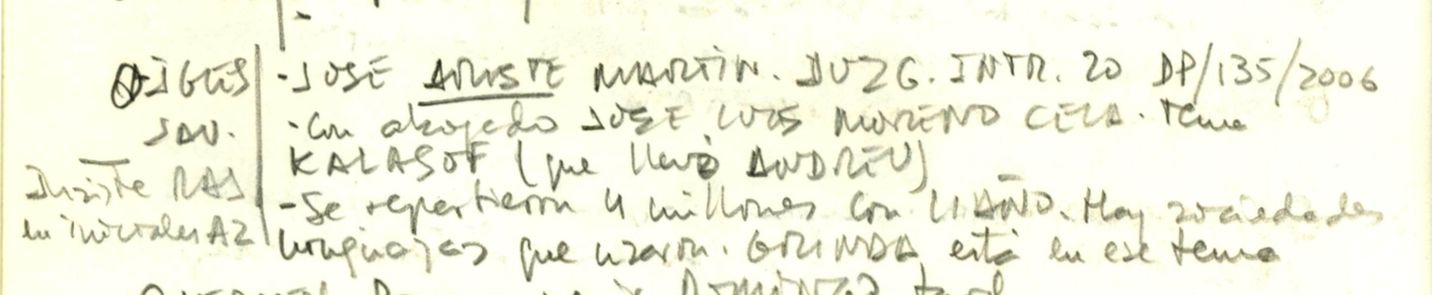 - JOSE ARISTE MARTIN. JUZG. INTR. 20 DP/135/2006
SAU.
- Con abogado JOSE LUIS MORENO CELA. Tema
KALASOF (que llevó ANDREU)
Insiste RAS
- Se repartieron 4 millones con LIAÑO. Hay sociedades
en iniciales AZ
que usaron. GORINDA está en ese tema